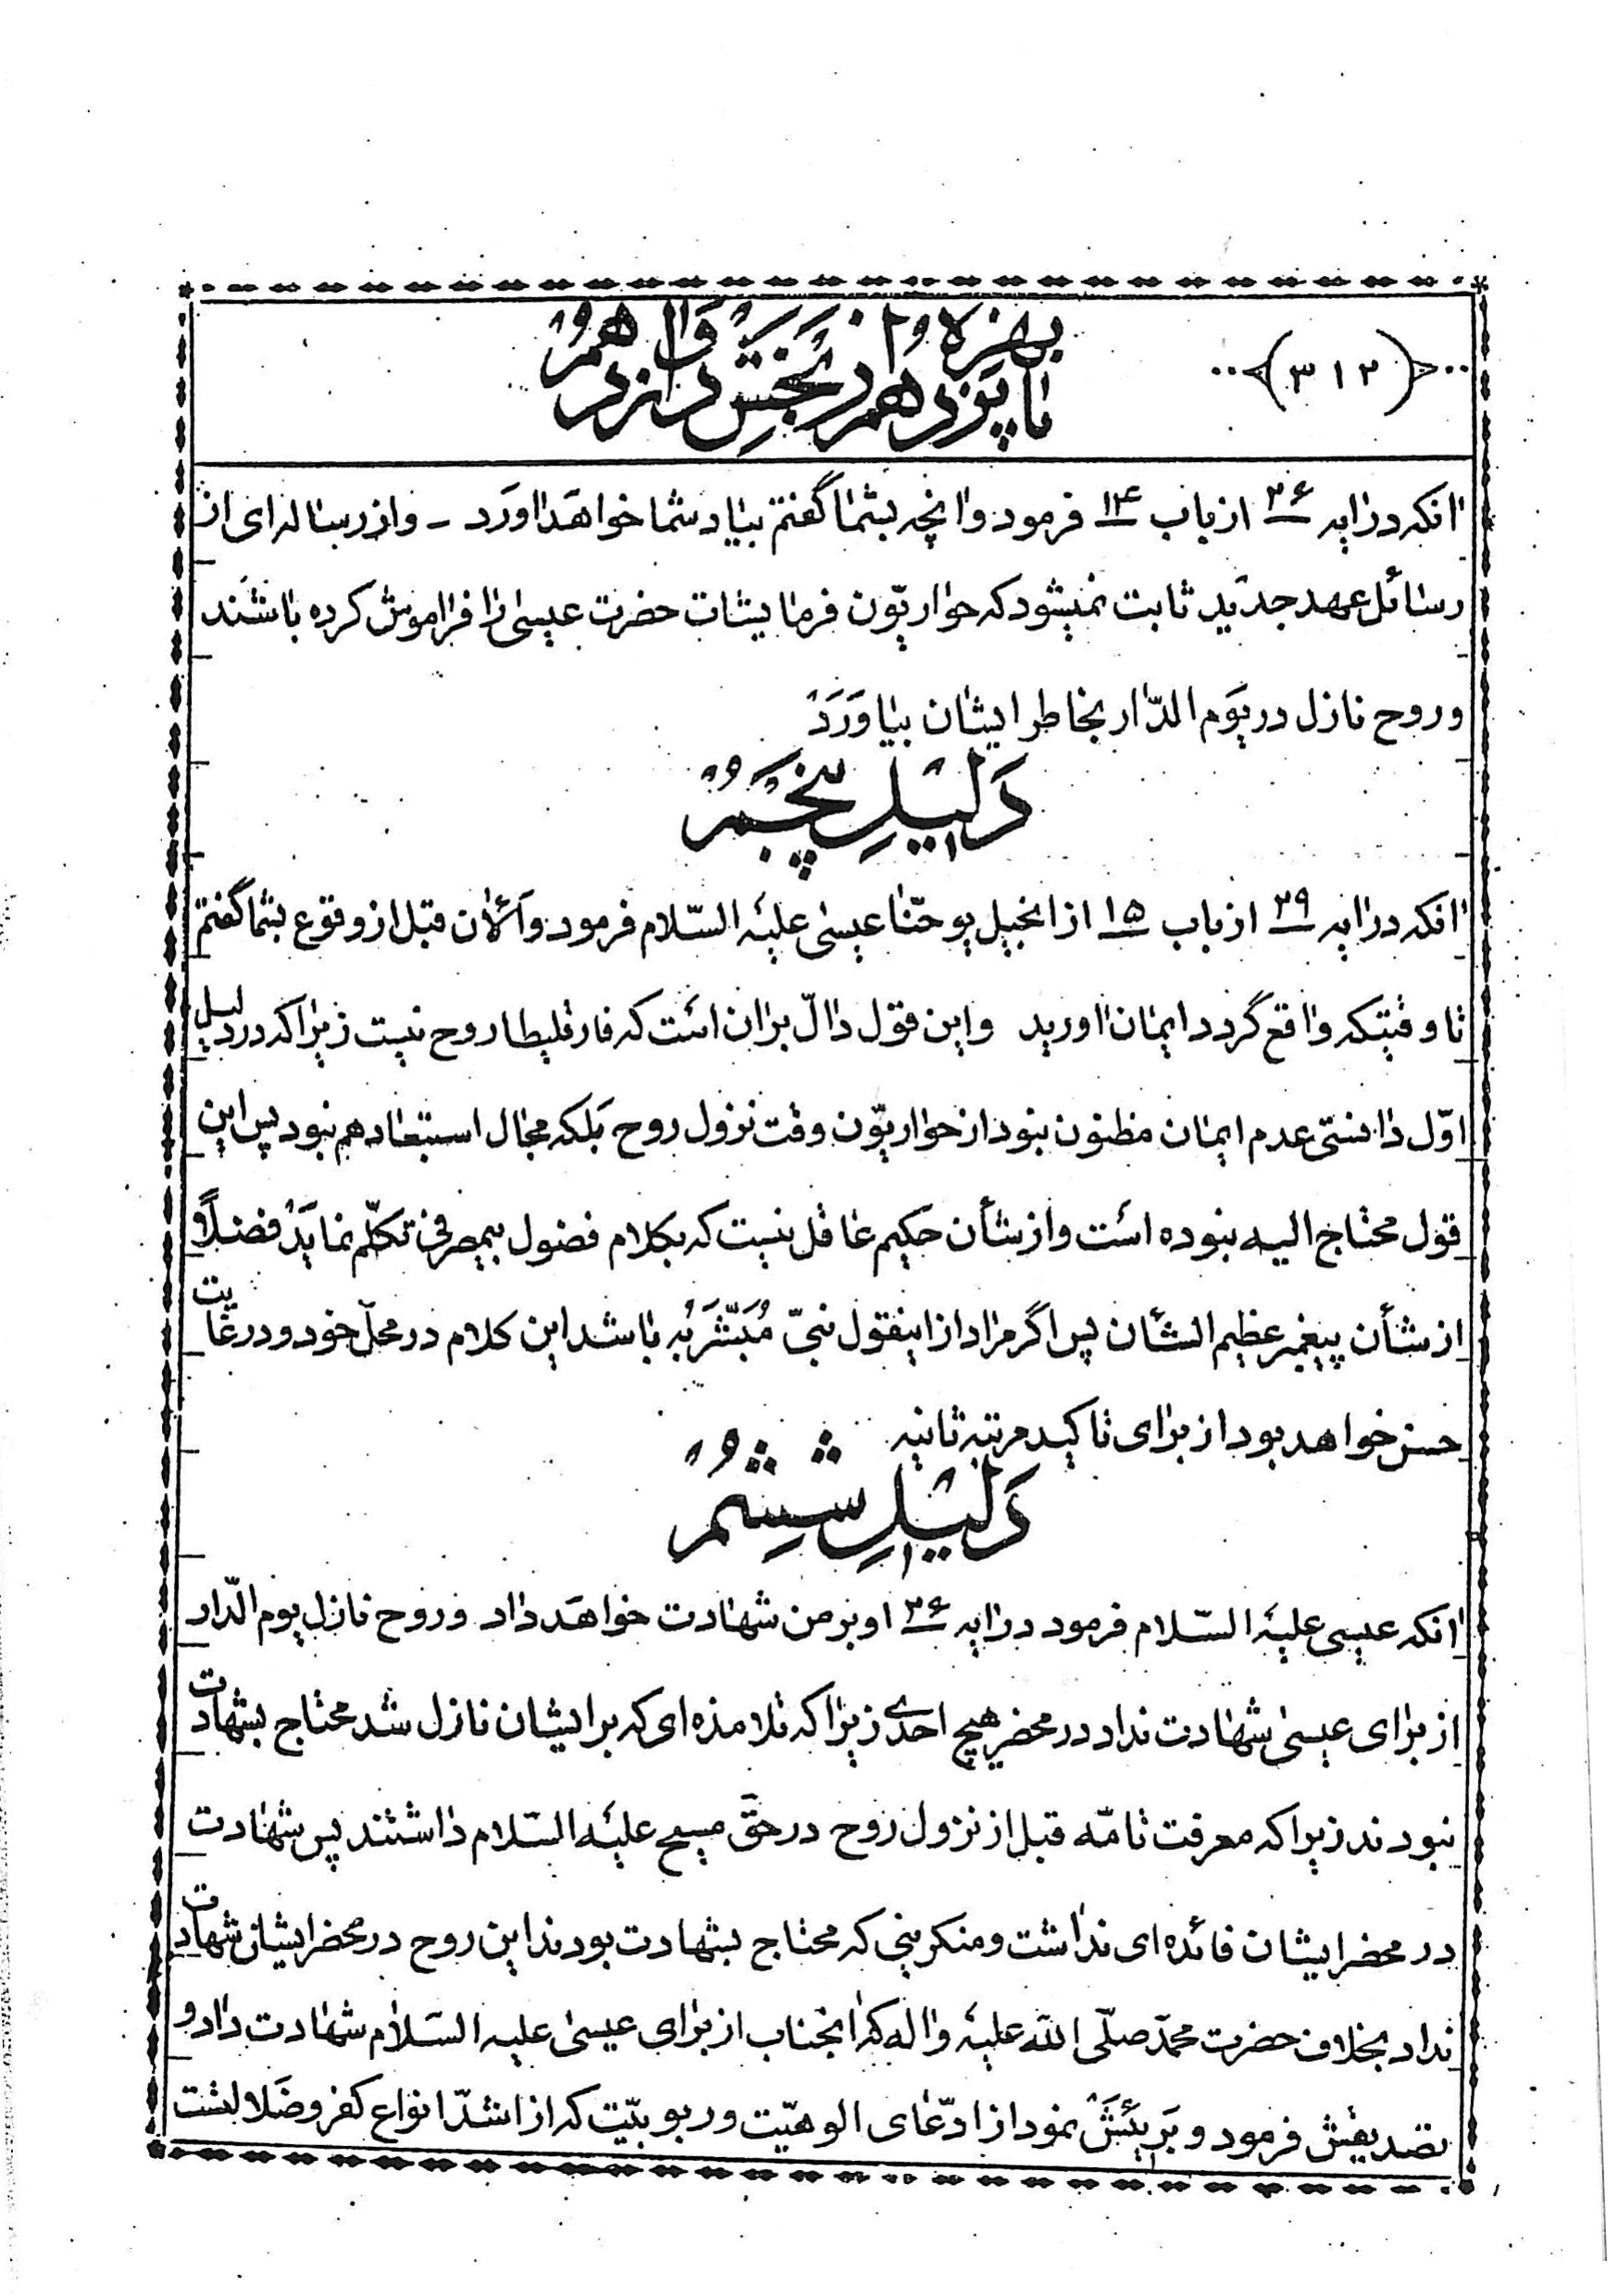 ﴿۳۱۲﴾
انکه در ایه ۲۶ از باب ۱۴ فرمود و انچه بشما گفتم بیاد شما خواهَد اورَد - و از رساله‌ای از
رسائل عهد جدید ثابت نمیشود که حواریّون فرمایشات حضرت عیسی را فراموش کرده باشَند
و روح نازل در یَوم الدّار بخاطر ایشان بیاورَدَ
دَلیلِ پنجَمُ
انکه در ایه ۲۹ از باب ۱۵ از انجیل یوحنّا عیسی علیه السّلام فرمود و اَلان قبل از وقوع بشما گفتم
تا وقتیکه واقع گردد ایمان اورید و این قول دالّ بر ان است که فارقلیطا روح نیست زیرا که در دلیل
اوّل دانستی عدم ایمان مظنون نبود از حواریّون وقت نزول روح بَلکه مجال استبعاد هم نبود پس این
قول محتاج الیه نبوده است و از شأن حکیم عاقل نیست که بکلام فضول بیمصرفی تکلّم نماید فضلاً
از شأن پیغمبر عظیم الشأن پس اگر مراد از اینقول نبیّ مُبَشَّر بِه باشد این کلام در محلّ خود و در غایت
حسن خواهد بود از برای تاکید مرتبه ثانیه
دَلیلِ ششمُ
انکه عیسی علیه السّلام فرمود در ایه ۲۶ او بر من شهادت خواهَد داد و روح نازل یوم الدّار
از برای عیسی شهادت نداد در محضر هیچ احدی زیرا که تلامذه‌ای که بر ایشان نازل شد محتاج بشهادت
نبودند زیرا که معرفت تامّه قبل از نزول روح در حقّ مسیح علیه السّلام داشتند پس شهادت
در محضر ایشان فائده‌ای نداشت و منکرینی که محتاج بشهادت بودند این روح در محضر ایشان شهادت
نداد بخلاف حضرت محمّد صلّی الله علیه و اله که انجناب از برای عیسی علیه السّلام شهادت داد و
تصدیقش فرمود و بَریئَشَ نمود از ادّعای الوهیّت و ربوبیّت که از اشدّ انواع کفر و ضَلالَست